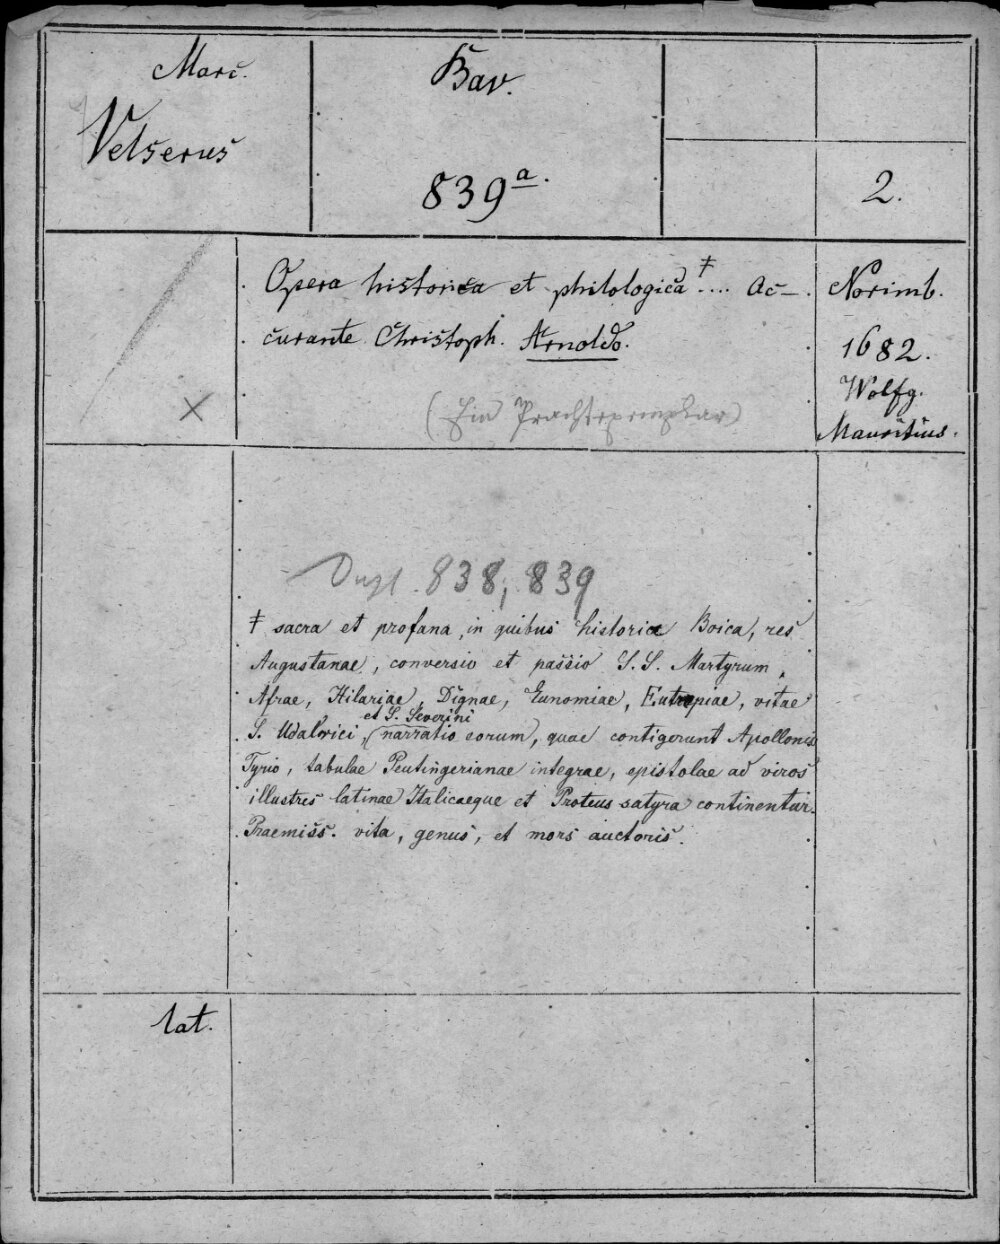 Marc.
Velserus
Bav.
839a.
2.
Opera historica et philologica ‡ .... Ac-
curante Christoph. Arnoldo.
(Ein Prachtexemplar)
Norimb.
1682.
Wolfg.
Mauritius.
Dupl. 838, 839
‡ sacra et profana, in quibus historia Boica, res
Augustanae, conversio et passio S.S. Martyrum,
Afrae, Hilariae, Dignae, Eunomiae, Eutropiae, vitae
S. Udalrici et S. Severini, narratio eorum, quae contigerunt Apollonio
Tyrio, tabulae Peutingerianae integrae, epistolae ad viros
illustres latinae Italicaeque et Proteus satyra continentur.
Praemiss. vita, genus, et mors auctoris.
lat.